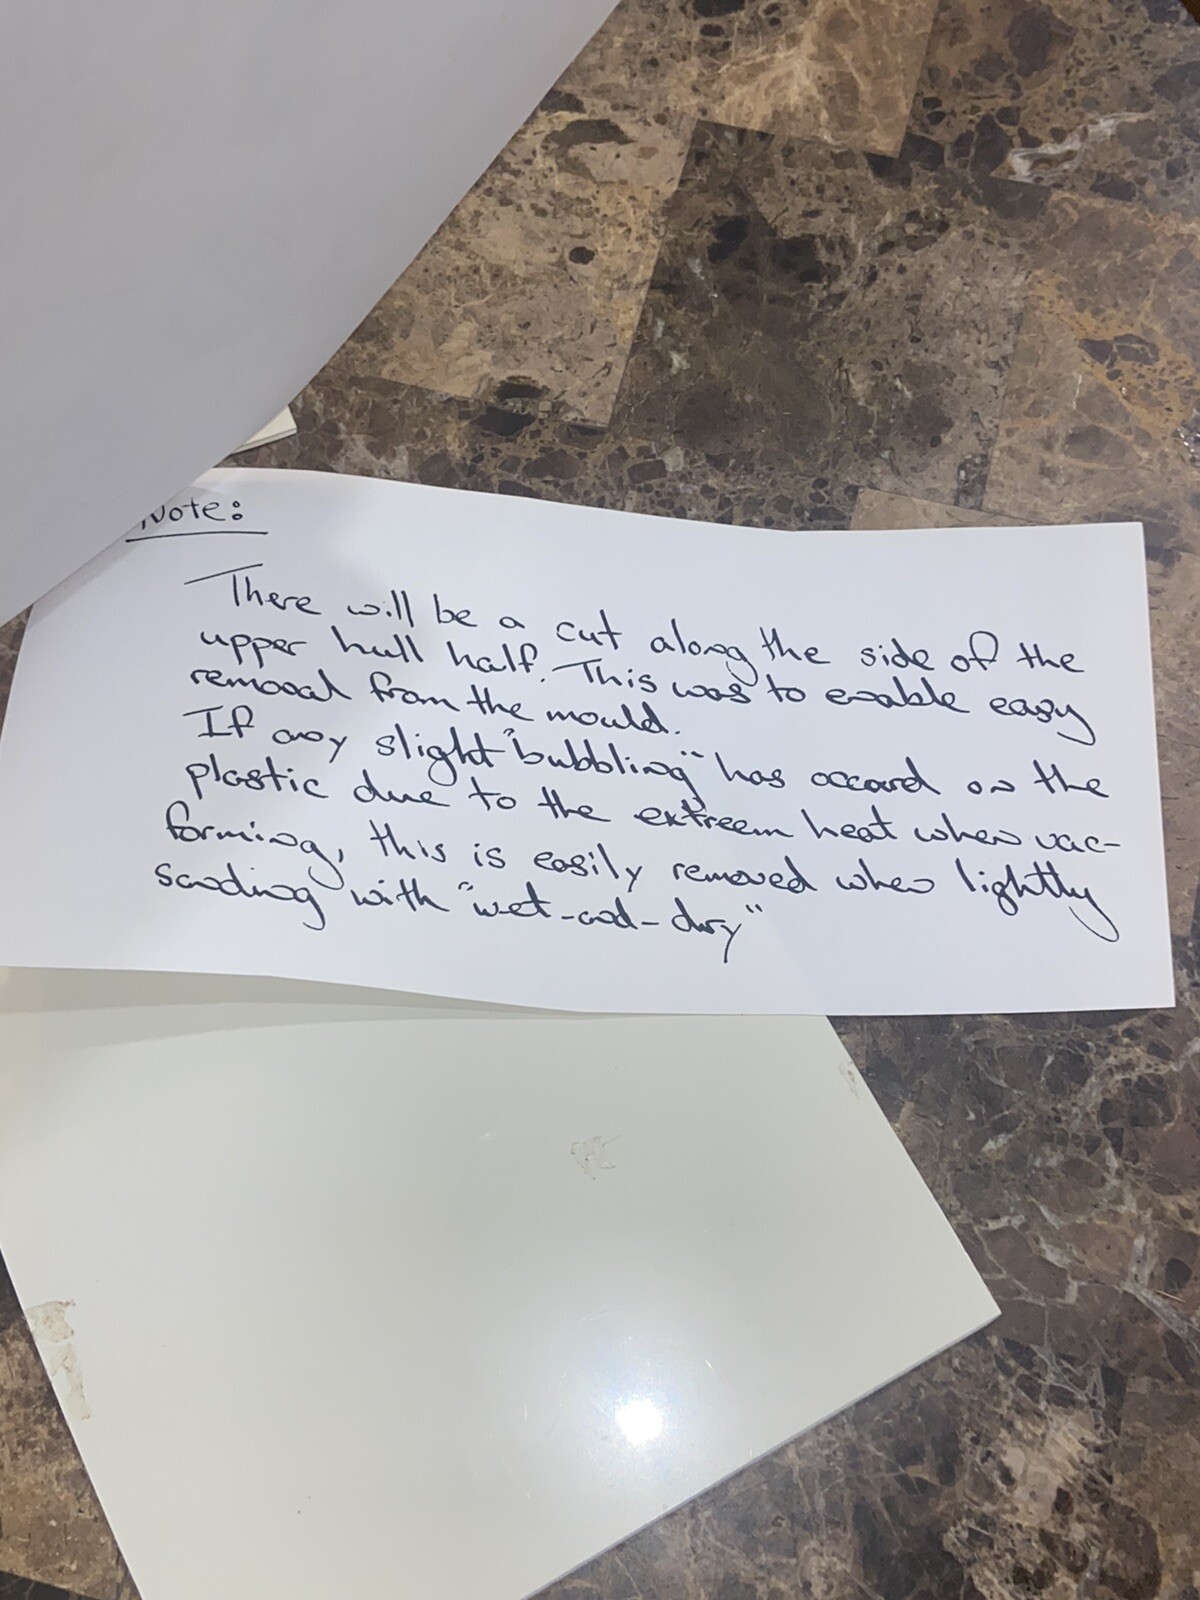 Note:
There will be a cut along the side of the
upper hull half. This was to enable easy
removal from the mould.
If any slight "bubbling" has occard on the
plastic due to the extreem heat when vac-
forming, this is easily removed when lightly
sanding with "wet-and-dry"